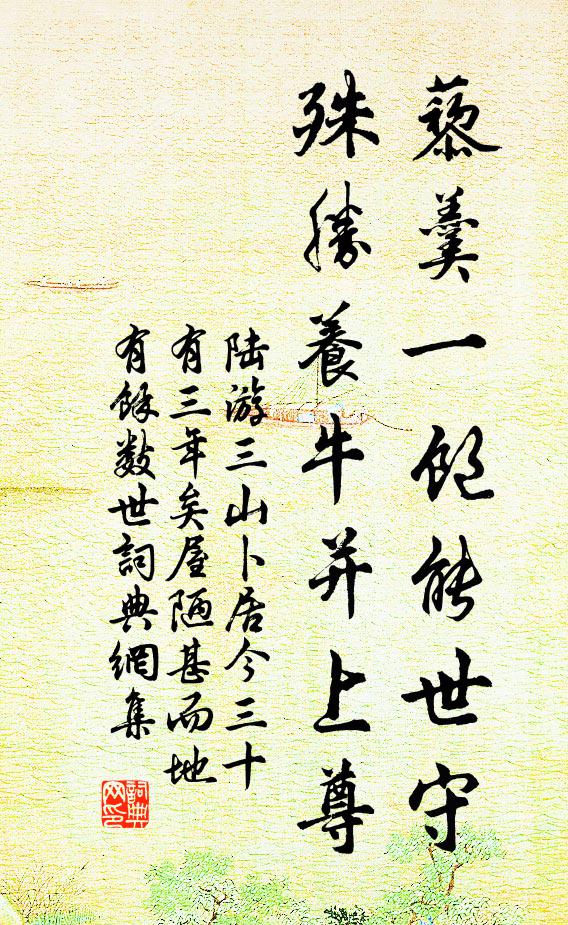 藜羹一飽能世守
殊勝養牛并上尊
陆游三山卜居今三十
有三年矣屋陋甚而地
有餘数世詞典網集
詞典
网印